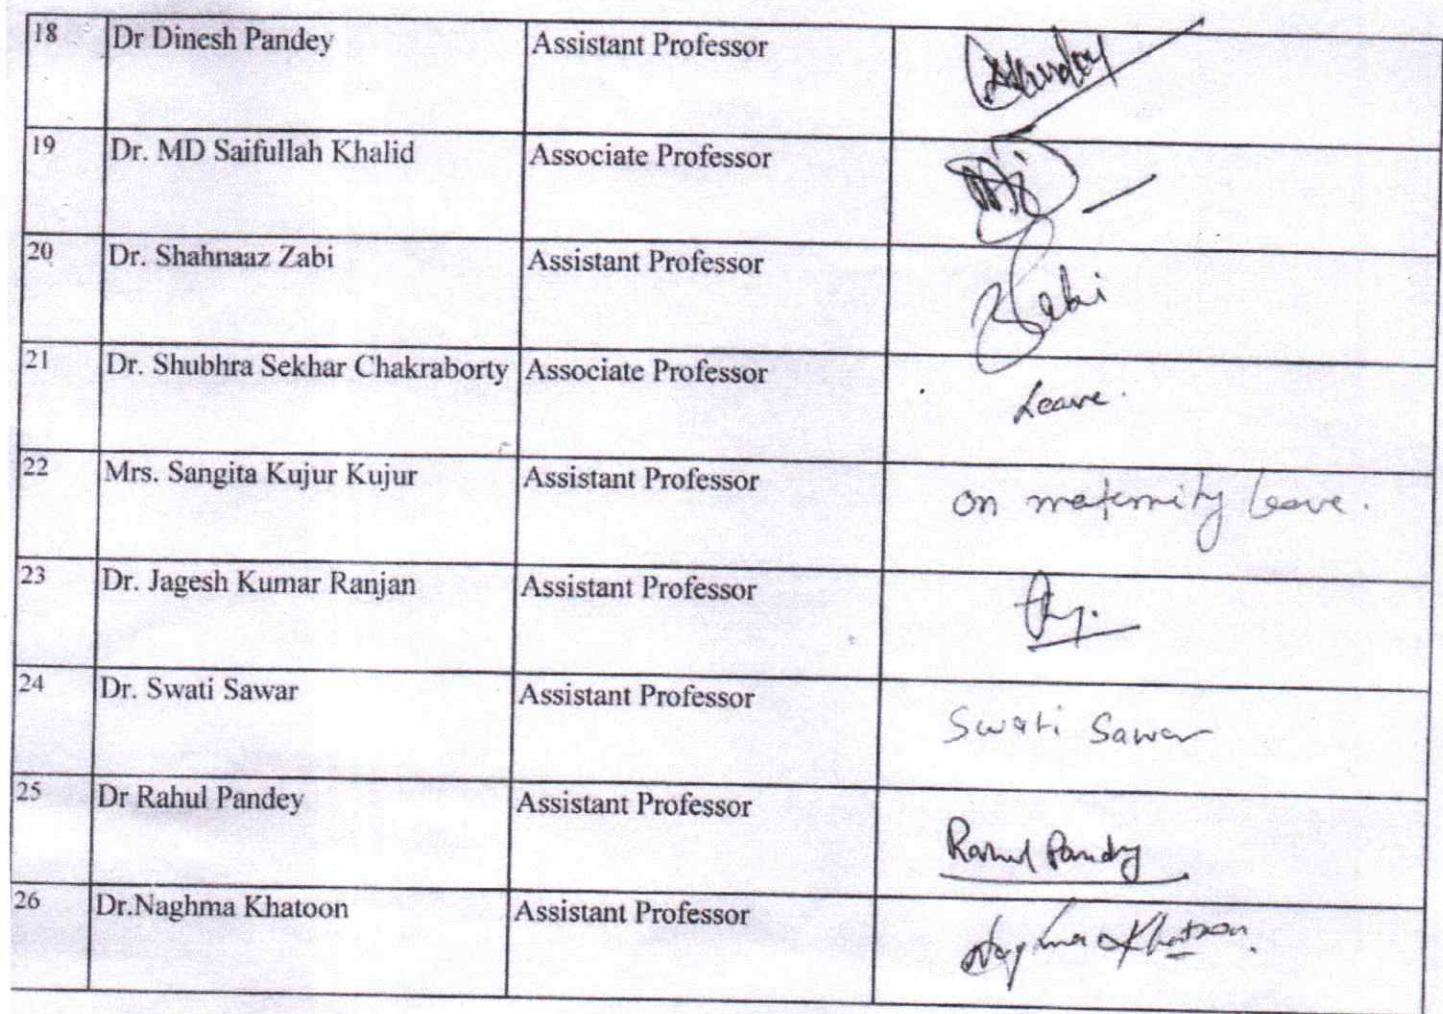 18 Dr Dinesh Pandey Assistant Professor
19 Dr. MD Saifullah Khalid Associate Professor
20 Dr. Shahnaaz Zabi Assistant Professor Zabi
21 Dr. Shubhra Sekhar Chakraborty Associate Professor Leave.
22 Mrs. Sangita Kujur Kujur Assistant Professor on maternity leave.
23 Dr. Jagesh Kumar Ranjan Assistant Professor
24 Dr. Swati Sawar Assistant Professor Swati Sawar
25 Dr Rahul Pandey Assistant Professor Rahul Pandey
26 Dr.Naghma Khatoon Assistant Professor Naghma Khatoon.